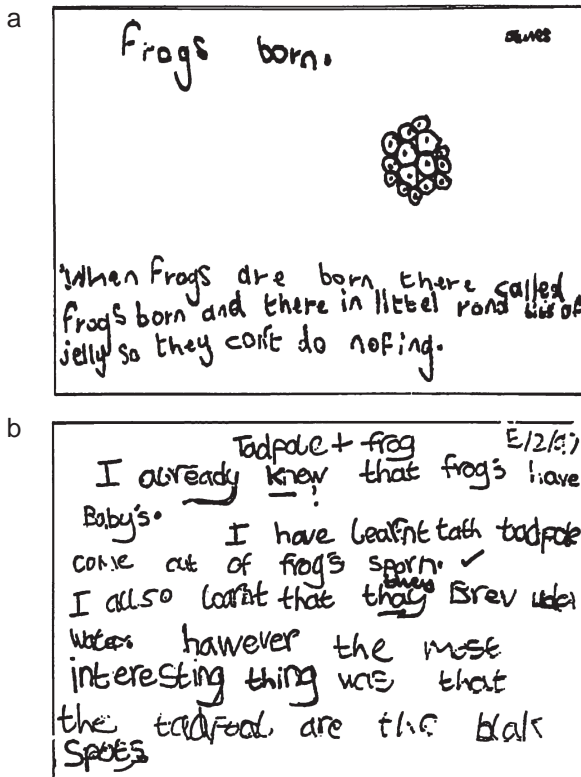 a
Frogs born.
When frogs are born there called
frogs born and there in littel rond bits of
jelly so they con't do nofing.
b
Tadpole + frog
I already knew that frog's have
Baby's.
I have learnt tath tadpole
come out of frog's sporn. ✓
they
I allso learnt that thay Brev under
water. however the most
interesting thing was that
the are the blak
spots